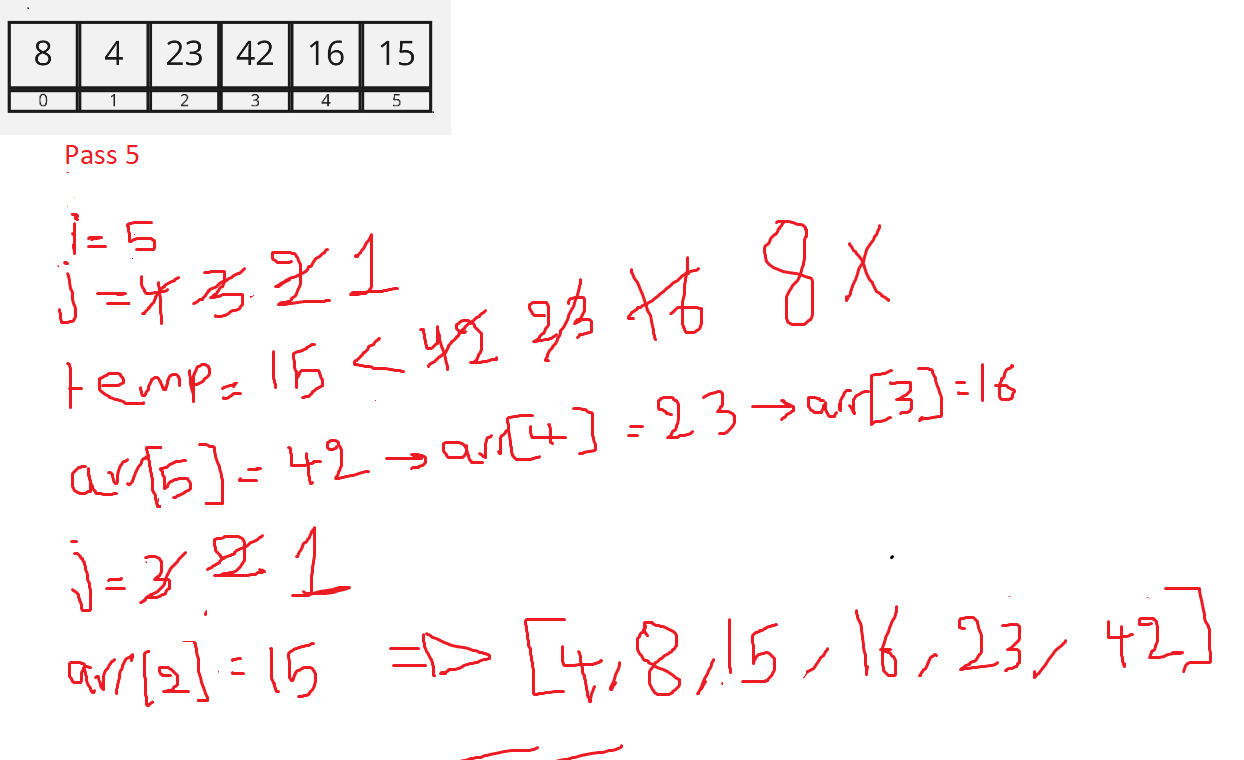 8 4 23 42 16 15
0 1 2 3 4 5
Pass 5
i = 5
j = 4 3 2 1
temp = 15 < 42 23 16 8 X
arr[5] = 42 → arr[4] = 23 → arr[3] = 16
j = 3 2 1
arr[2] = 15 ⇒ [4, 8, 15, 16, 23, 42]